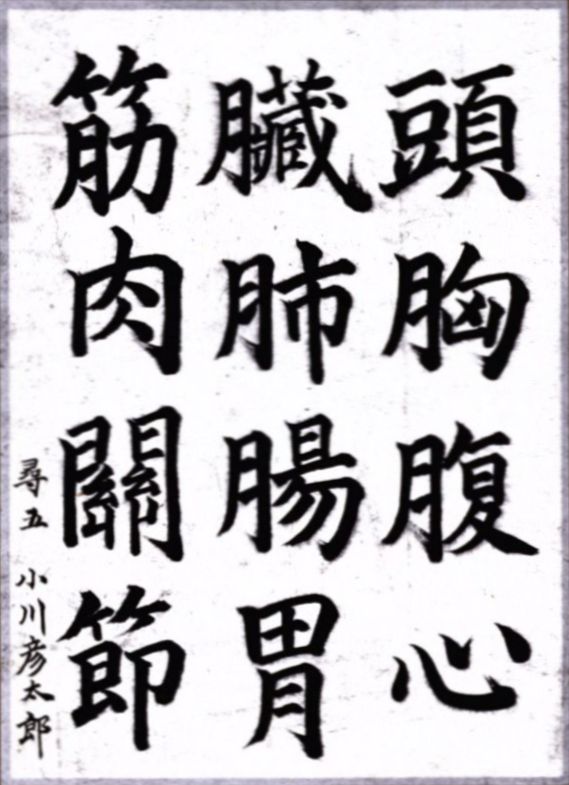 頭胸腹心
臓肺腸胃
筋肉關節
尋五 小川彦太郎